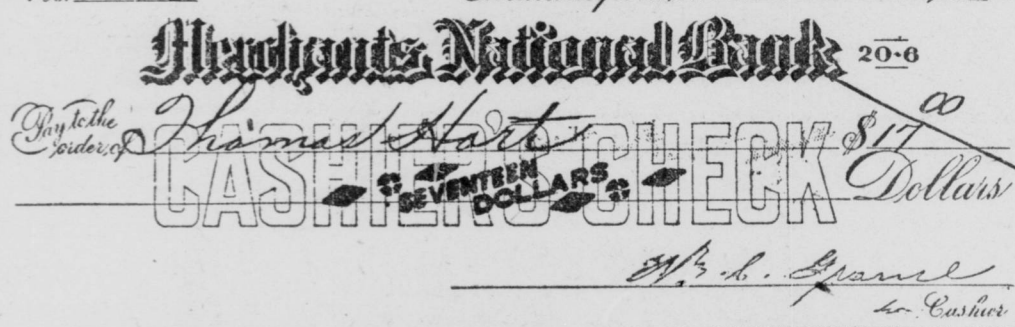 Merchants National Bank 20-6
Pay to the order of Thomas Hart $17 00
CASHIER'S CHECK
SEVENTEEN DOLLARS Dollars
Cashier